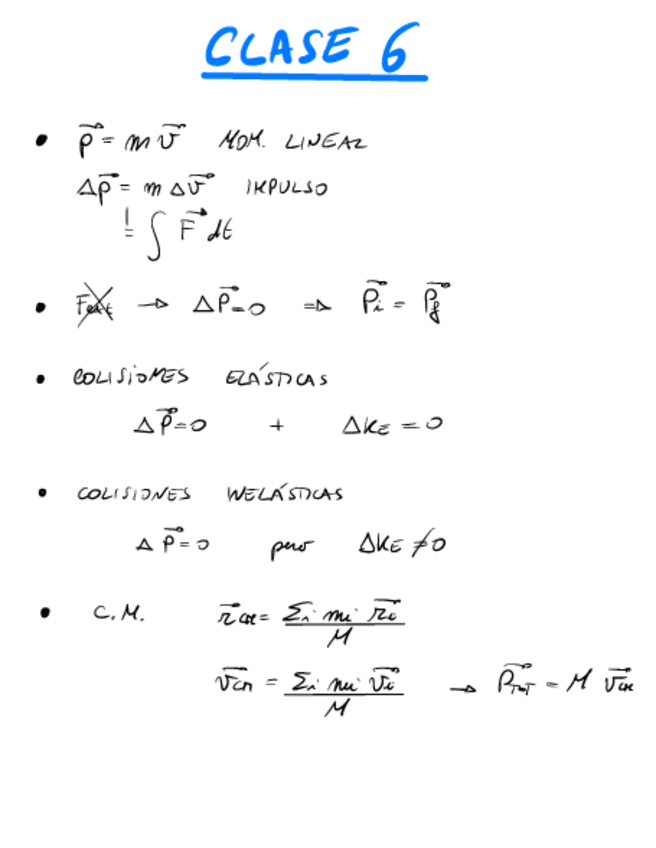 CLASE 6
• p⃗ = m v⃗ MOM. LINEAL
Δp⃗ = m Δv⃗ IMPULSO
= ∫ F⃗ dt
• F⃗ext → ΔP⃗=0 ⇒ P⃗i = P⃗f
• COLISIONES ELÁSTICAS
ΔP⃗=0 + ΔKE = 0
• COLISIONES INELÁSTICAS
ΔP⃗=0 pero ΔKE ≠ 0
• C.M. r⃗CM = Σi mi r⃗i / M
v⃗CM = Σi mi v⃗i / M → P⃗TOT = M v⃗CM